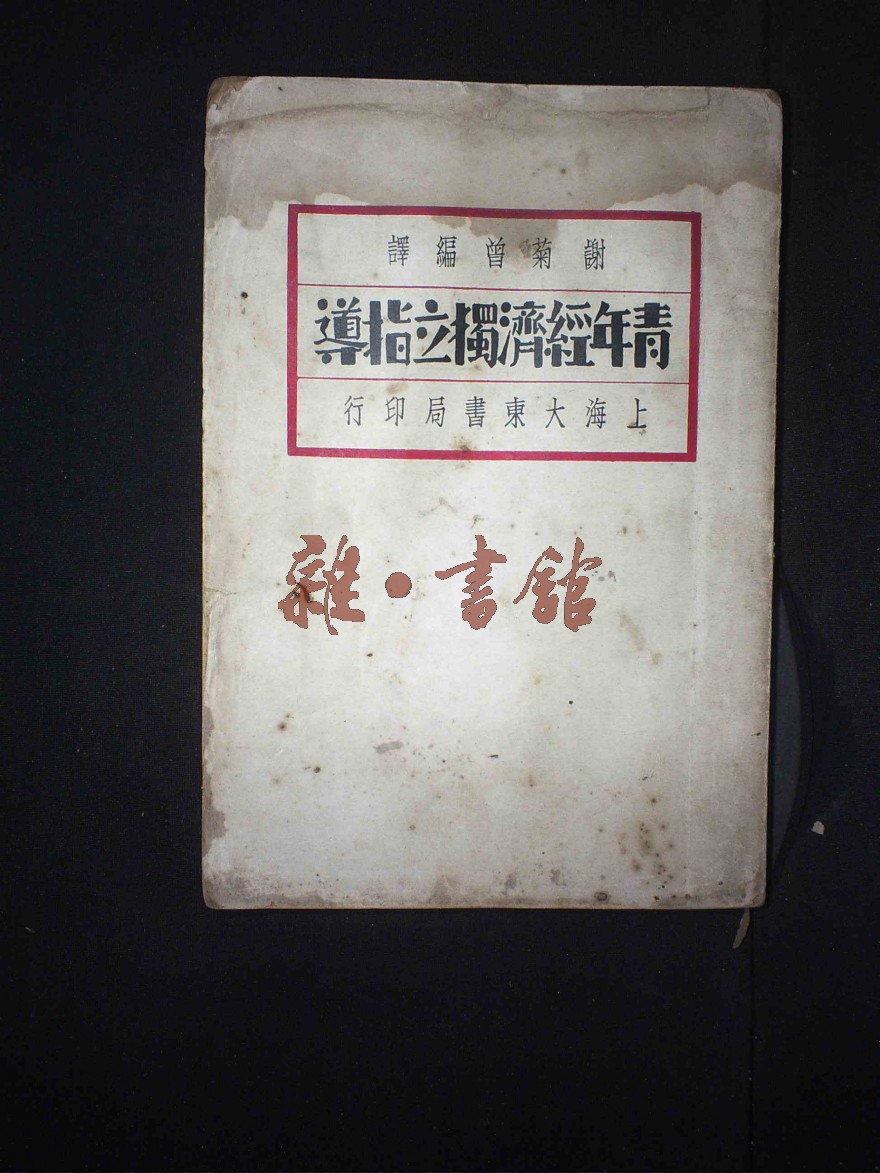 謝菊曾編譯
青年經濟獨立指導
上海大東書局印行
雜·書館